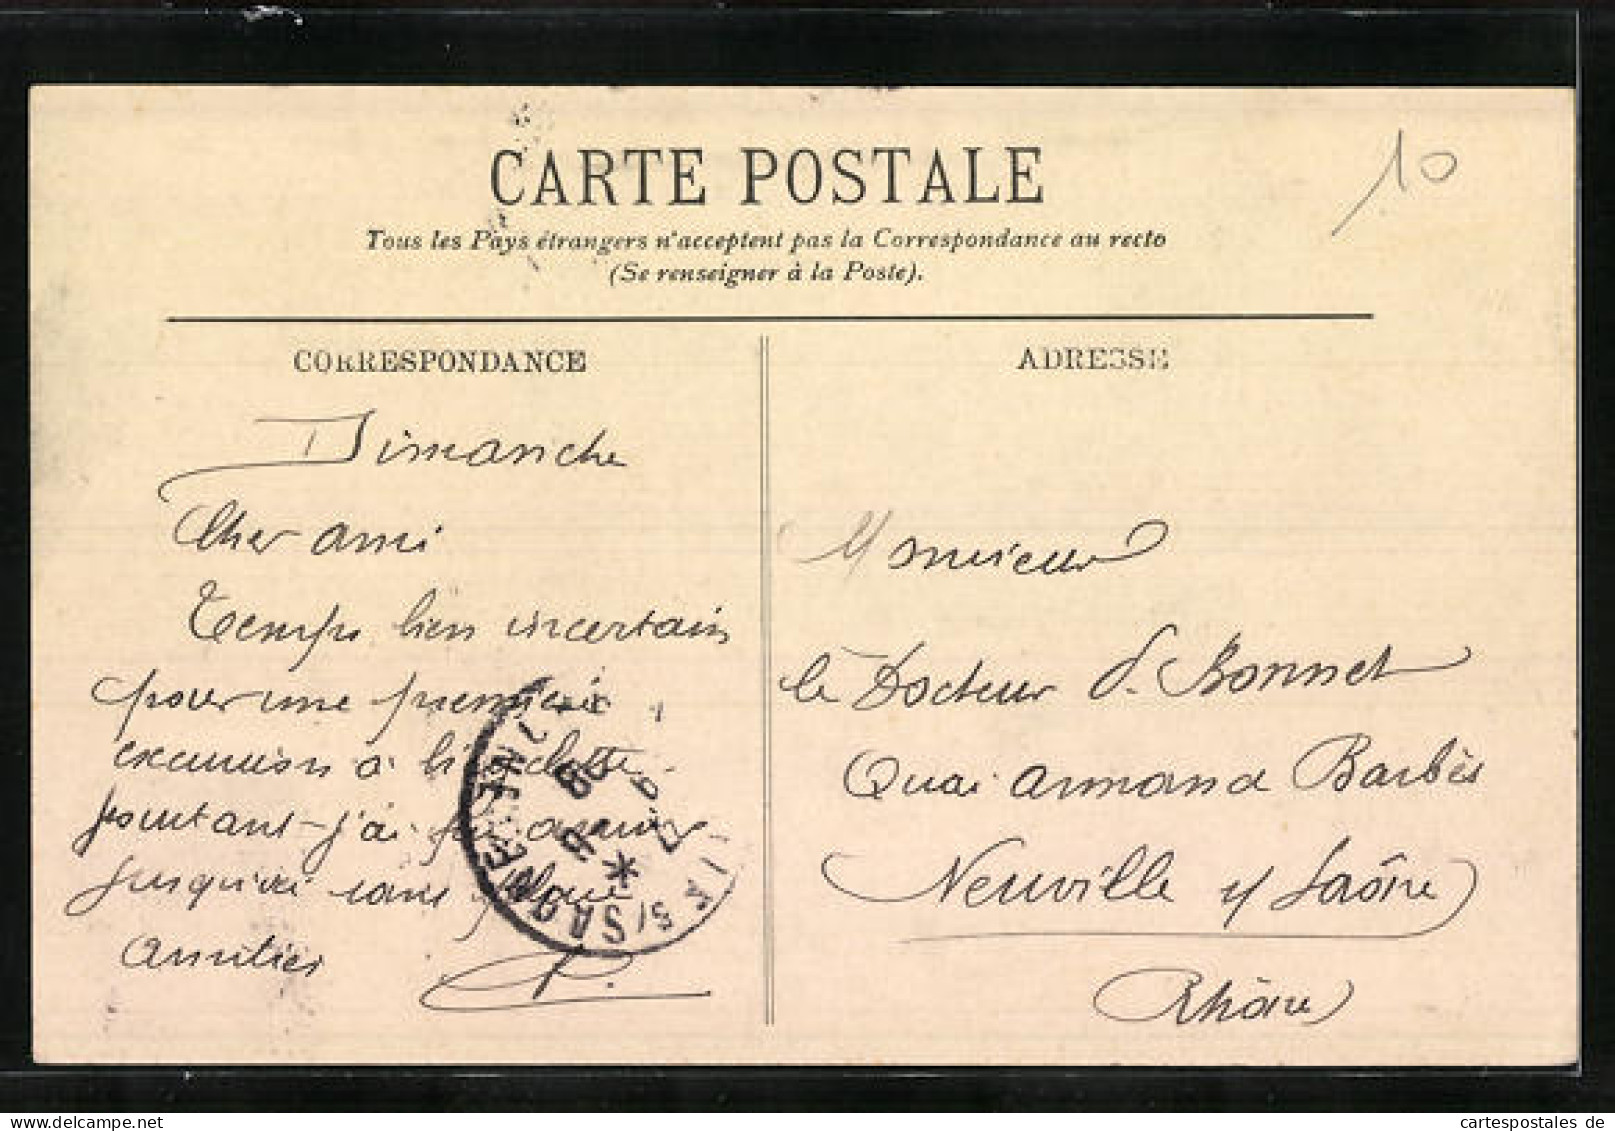 CARTE POSTALE
Tous les Pays étrangers n'acceptent pas la Correspondance au recto
(Se renseigner à la Poste).
10
CORRESPONDANCE
Dimanche
Cher ami
Temps bien incertain
pour une première
excursion à bicyclette
pourtant j'ai pu arriver
jusqu'ici sans pluie
Amitiés
ADRESSE
Monsieur
le Docteur J. Bonnet
Quai Armand Barbès
Neuville s/ Saône
Rhône
S/SAONE
cartespostales de